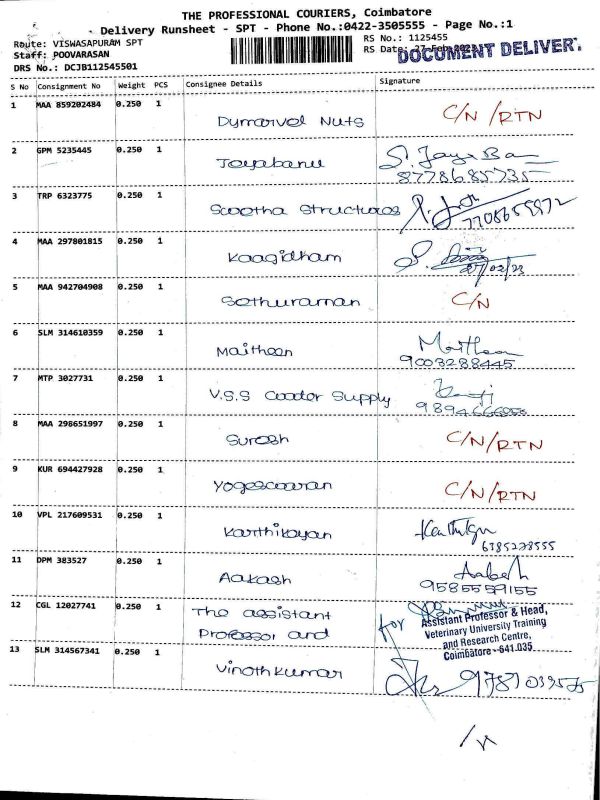 THE PROFESSIONAL COURIERS, Coimbatore
Delivery Runsheet - SPT - Phone No.:0422-3505555 - Page No.:1
Route: VISWASAPURAM SPT
RS No.: 1125455
Staff: POOVARASAN
RS Date: 27-Feb-2023
DOCUMENT DELIVER.
DRS No.: DCJB112545501
S No Consignment No Weight PCS Consignee Details Signature
1 MAA 859202484 0.250 1 Dymarvel Nuts C/N/RTN
2 GPM 5235445 0.250 1 Jayabanu S. Jaya Ba
8778685735
3 TRP 6323775 0.250 1 Swetha Structures
7708655972
4 MAA 297801815 0.250 1 Kaagidham
27/02/23
5 MAA 942704908 0.250 1 Sethuraman C/N
6 SLM 314610359 0.250 1 Maitheen Maitheen
9003288445
7 MTP 3027731 0.250 1 V.S.S Cooter Supply
8 MAA 298651997 0.250 1 Suresh C/N/RTN
9 KUR 694427928 0.250 1 Yogeswaran C/N/RTN
10 VPL 217609531 0.250 1 Karthikayan
6385228555
11 DPM 383527 0.250 1 Aakash Aakash
9585559155
12 CGL 12027741 0.250 1 The assistant
Professor and
for
Assistant Professor & Head,
Veterinary University Training
and Research Centre,
Coimbatore - 641 035
13 SLM 314567341 0.250 1 Vinothkumar 9789039575